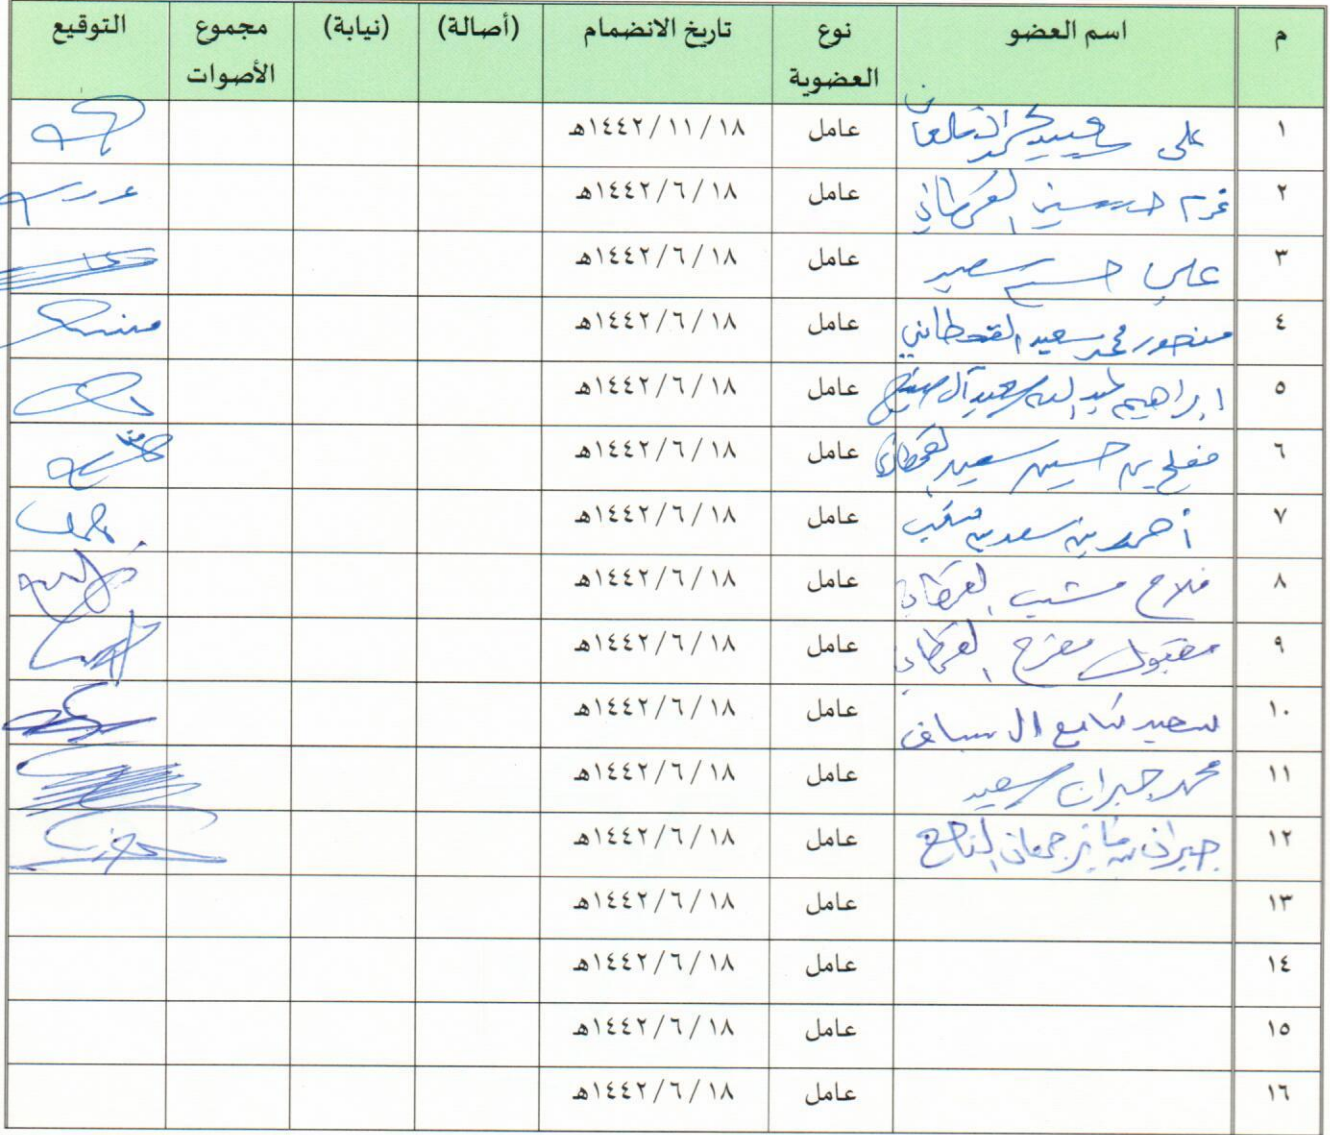 م اسم العضو نوع العضوية تاريخ الانضمام (أصالة) (نيابة) مجموع الأصوات التوقيع
١ على عامل ١٤٤٢/١١/١٨هـ
٢ حسين القحطاني عامل ١٤٤٢/٦/١٨هـ
٣ علي سعيد عامل ١٤٤٢/٦/١٨هـ
٤ منصور محمد سعيد القحطاني عامل ١٤٤٢/٦/١٨هـ
٥ ابراهيم عبدالله سعيد آل عامل ١٤٤٢/٦/١٨هـ
٦ مفلح بن حسين سعيد القحطاني عامل ١٤٤٢/٦/١٨هـ
٧ أحمد بن سعد بن عامل ١٤٤٢/٦/١٨هـ
٨ فلاح مشبب القحطاني عامل ١٤٤٢/٦/١٨هـ
٩ مقبول مفرح القحطاني عامل ١٤٤٢/٦/١٨هـ
١٠ سعيد ال عامل ١٤٤٢/٦/١٨هـ
١١ محمد جبران سعيد عامل ١٤٤٢/٦/١٨هـ
١٢ جبران بن عامل ١٤٤٢/٦/١٨هـ
١٣ عامل ١٤٤٢/٦/١٨هـ
١٤ عامل ١٤٤٢/٦/١٨هـ
١٥ عامل ١٤٤٢/٦/١٨هـ
١٦ عامل ١٤٤٢/٦/١٨هـ